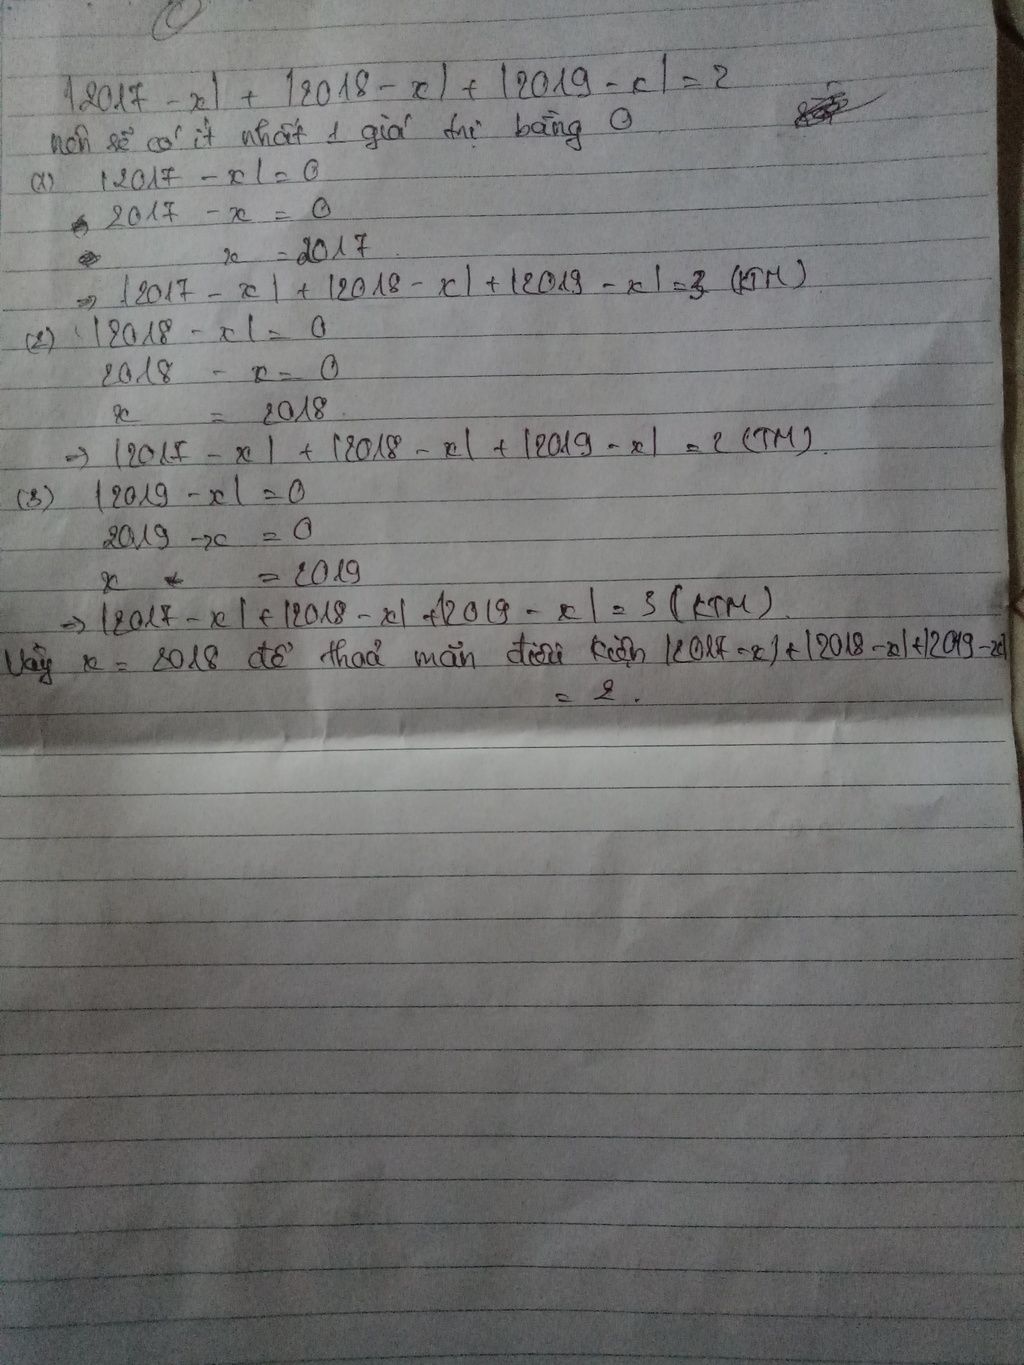 |2017 - x| + |2018 - x| + |2019 - x| = 2
nên sẽ có ít nhất 1 giá trị bằng 0
(1) |2017 - x| = 0
2017 - x = 0
x = 2017
=> |2017 - x| + |2018 - x| + |2019 - x| = 3 (KTM)
(2) |2018 - x| = 0
2018 - x = 0
x = 2018
=> |2017 - x| + |2018 - x| + |2019 - x| = 2 (TM).
(3) |2019 - x| = 0
2019 - x = 0
x = 2019
=> |2017 - x| + |2018 - x| + |2019 - x| = 3 (KTM).
Vậy x = 2018 để thoả mãn điều kiện |2017 - x| + |2018 - x| + |2019 - x|
= 2.